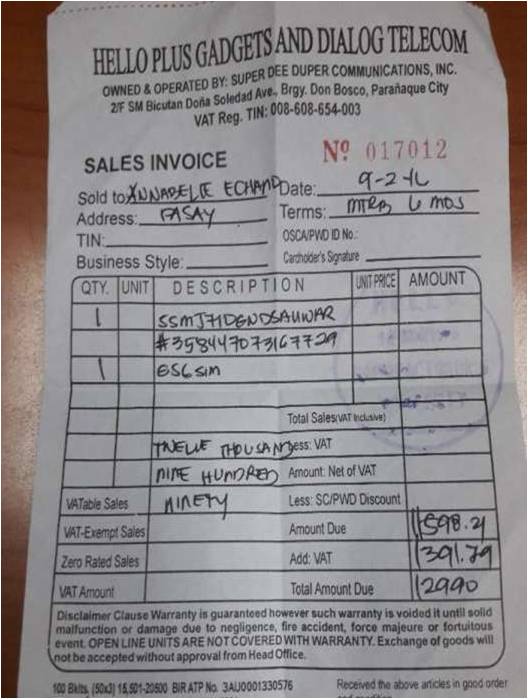 HELLO PLUS GADGETS AND DIALOG TELECOM
OWNED & OPERATED BY: SUPER DEE DUPER COMMUNICATIONS, INC.
2/F SM Bicutan Doña Soledad Ave., Brgy. Don Bosco, Parañaque City
VAT Reg. TIN: 008-608-654-003
SALES INVOICE Nº 017012
Sold to: ANNABELIE Date: 9-2-16
Address: PASAY Terms: MTRB 6 MOS
TIN: OSCA/PWD ID No.:
Business Style: Cardholder's Signature
QTY. UNIT DESCRIPTION UNIT PRICE AMOUNT
1
#358447073167729
1 SIM
Total Sales (VAT Inclusive)
TWELVE THOUSAND Less: VAT
NINE HUNDRED Amount: Net of VAT
VATable Sales NINETY Less: SC/PWD Discount
VAT-Exempt Sales Amount Due 11598.21
Zero Rated Sales Add: VAT 1391.79
VAT Amount Total Amount Due 12990
Disclaimer Clause Warranty is guaranteed however such warranty is voided it until solid
malfunction or damage due to negligence, fire accident, force majeure or fortuitous
event. OPEN LINE UNITS ARE NOT COVERED WITH WARRANTY. Exchange of goods will
not be accepted without approval from Head Office.
100 Bklts. (50x3) 15,501-20500 BIR ATP No. 3AU0001330576 Received the above articles in good order